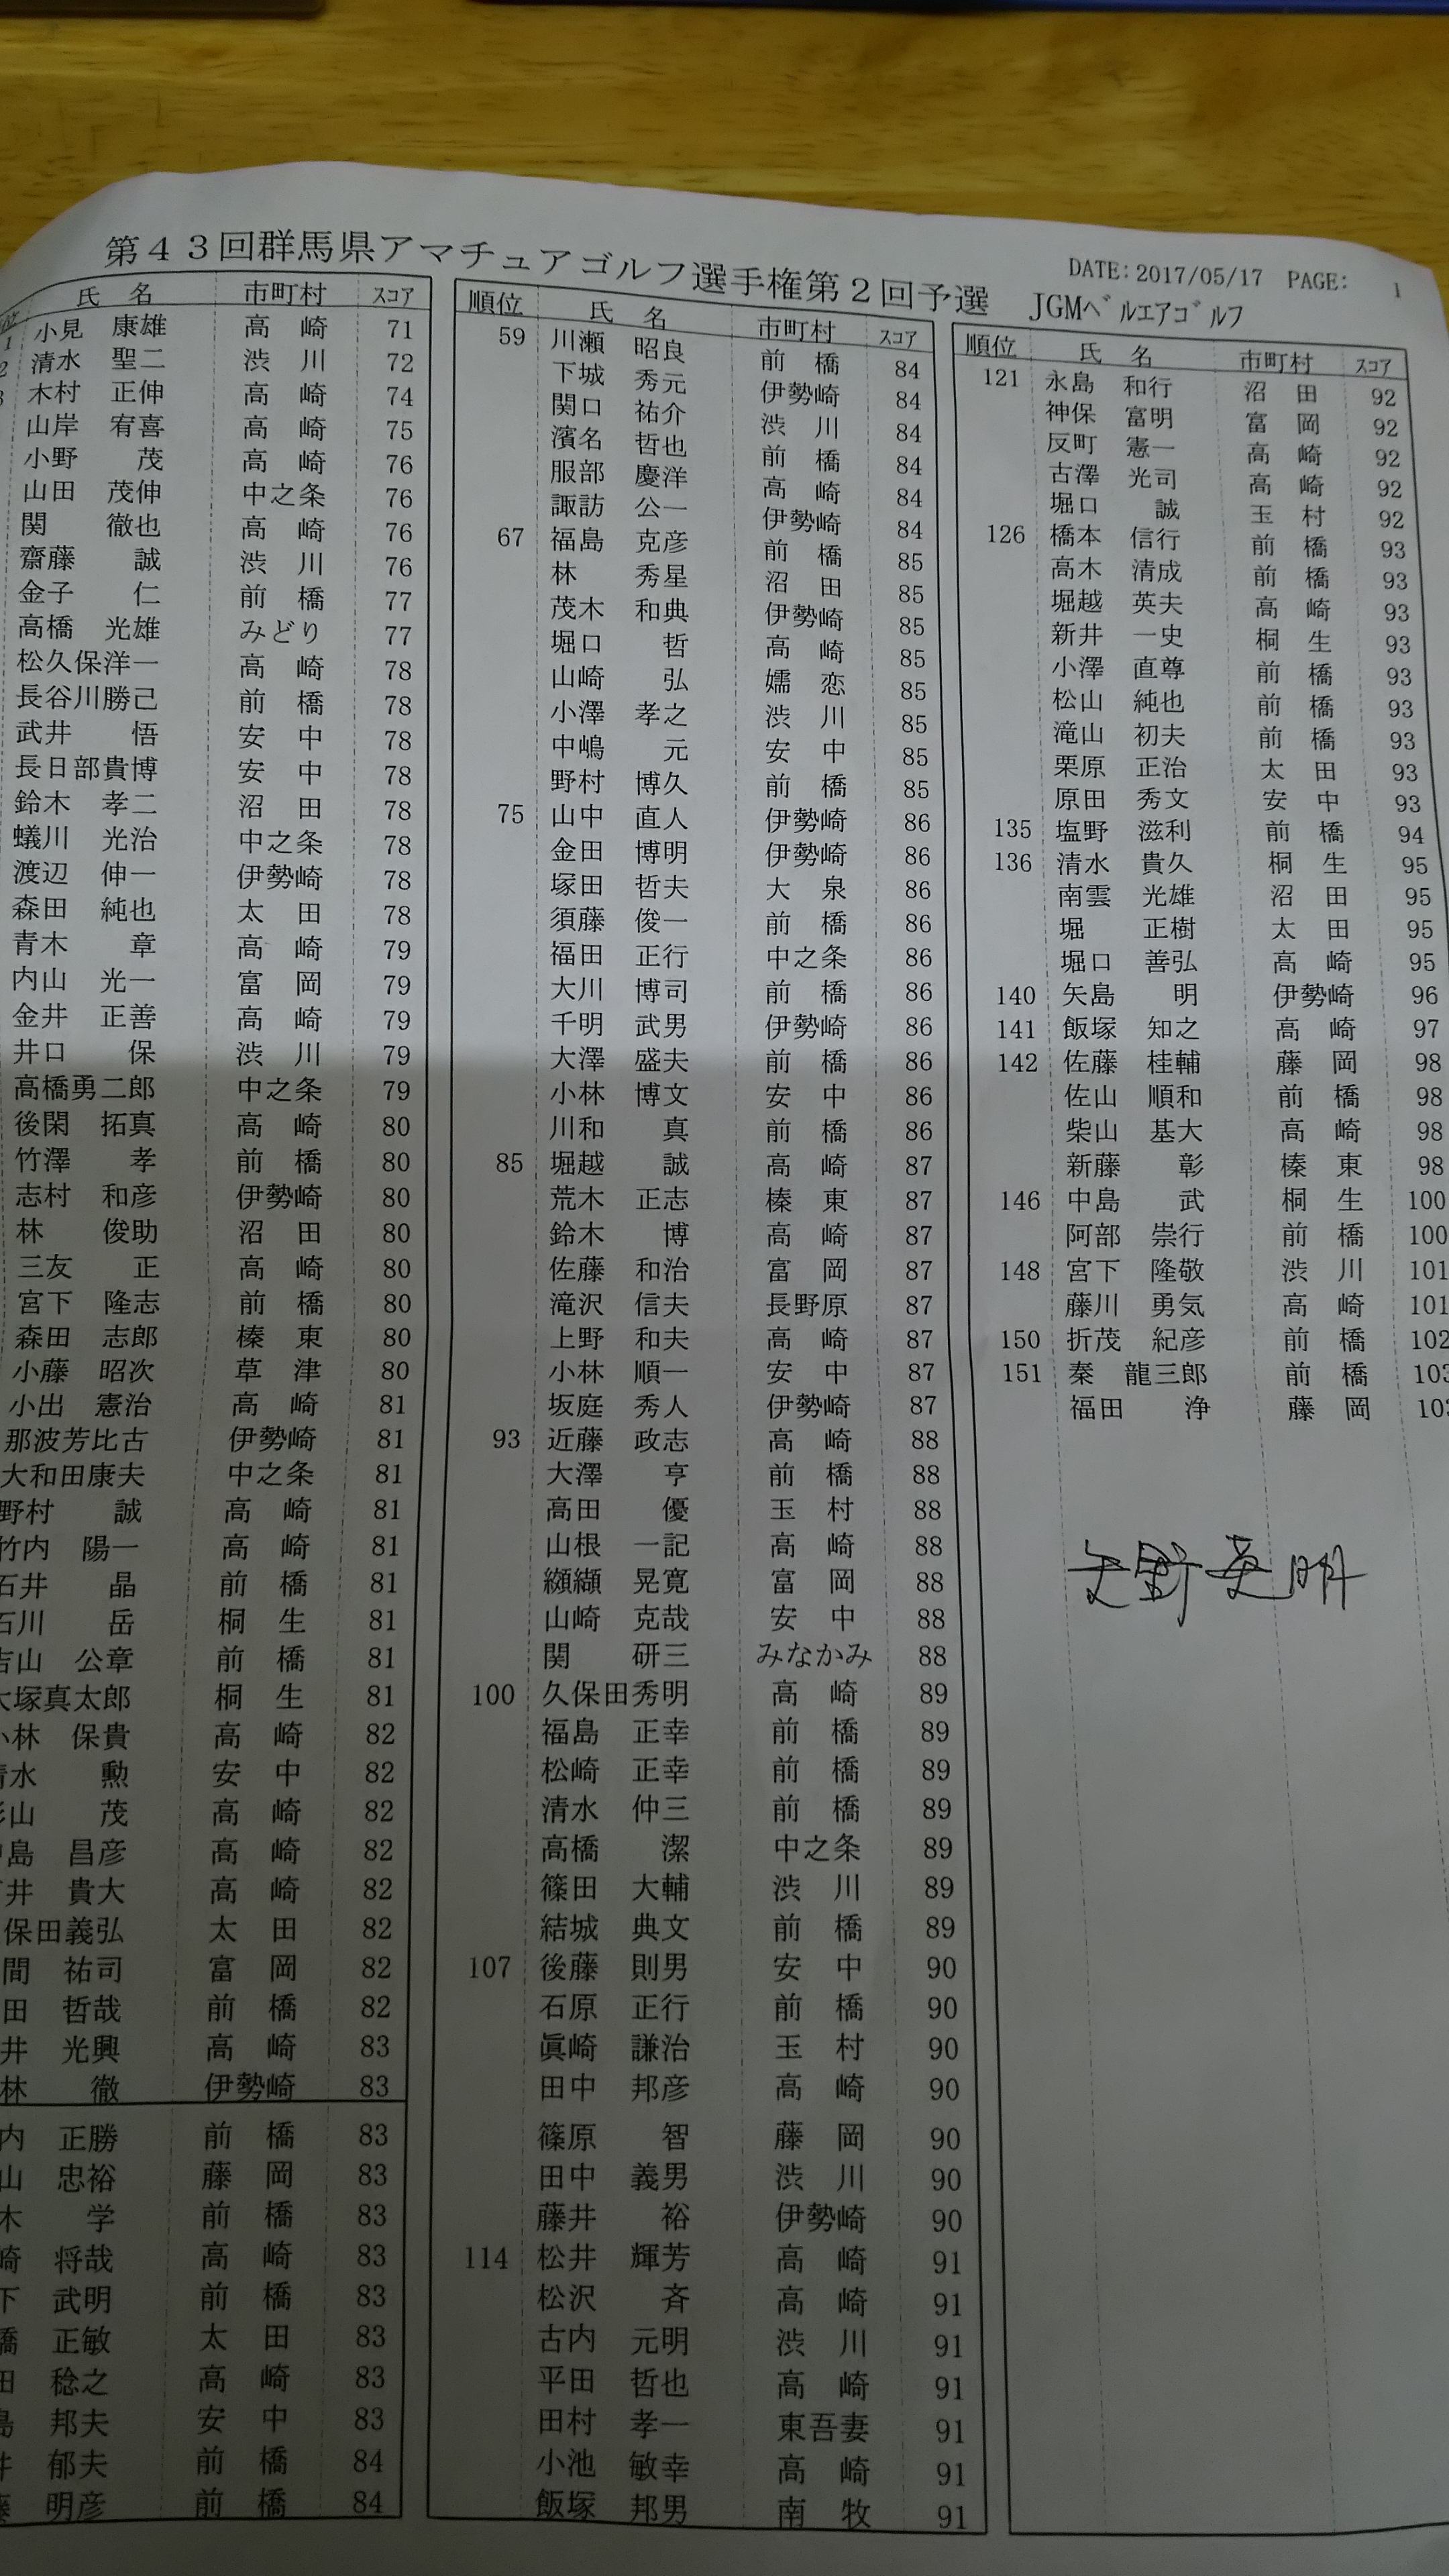 第43回群馬県アマチュアゴルフ選手権第2回予選
DATE:2017/05/17 PAGE: 1
JGMベルエアゴルフ
氏 名 市町村 スコア
1 小見 康雄 高 崎 71
2 清水 聖二 渋 川 72
3 木村 正伸 高 崎 74
山岸 宥喜 高 崎 75
小野 茂 高 崎 76
山田 茂伸 中之条 76
関 徹也 高 崎 76
齋藤 誠 渋 川 76
金子 仁 前 橋 77
高橋 光雄 みどり 77
松久保洋一 高 崎 78
長谷川勝己 前 橋 78
武井 悟 安 中 78
長日部貴博 安 中 78
鈴木 孝二 沼 田 78
蟻川 光治 中之条 78
渡辺 伸一 伊勢崎 78
森田 純也 太 田 78
青木 章 高 崎 79
内山 光一 富 岡 79
金井 正善 高 崎 79
井口 保 渋 川 79
高橋勇二郎 中之条 79
後閑 拓真 高 崎 80
竹澤 孝 前 橋 80
志村 和彦 伊勢崎 80
林 俊助 沼 田 80
三友 正 高 崎 80
宮下 隆志 前 橋 80
森田 志郎 榛 東 80
小藤 昭次 草 津 80
小出 憲治 高 崎 81
那波芳比古 伊勢崎 81
大和田康夫 中之条 81
野村 誠 高 崎 81
竹内 陽一 高 崎 81
石井 晶 前 橋 81
石川 岳 桐 生 81
吉山 公章 前 橋 81
大塚真太郎 桐 生 81
小林 保貴 高 崎 82
清水 勲 安 中 82
山 茂 高 崎 82
島 昌彦 高 崎 82
井 貴大 高 崎 82
保田義弘 太 田 82
間 祐司 富 岡 82
田 哲哉 前 橋 82
井 光興 高 崎 83
林 徹 伊勢崎 83
内 正勝 前 橋 83
山 忠裕 藤 岡 83
木 学 前 橋 83
崎 将哉 高 崎 83
下 武明 前 橋 83
橋 正敏 太 田 83
田 稔之 高 崎 83
島 邦夫 安 中 83
井 郁夫 前 橋 84
藤 明彦 前 橋 84
順位 氏 名 市町村 スコア
59 川瀬 昭良 前 橋 84
下城 秀元 伊勢崎 84
関口 祐介 渋 川 84
濱名 哲也 前 橋 84
服部 慶洋 高 崎 84
諏訪 公一 伊勢崎 84
67 福島 克彦 前 橋 85
林 秀星 沼 田 85
茂木 和典 伊勢崎 85
堀口 哲 高 崎 85
山崎 弘 嬬 恋 85
小澤 孝之 渋 川 85
中嶋 元 安 中 85
野村 博久 前 橋 85
75 山中 直人 伊勢崎 86
金田 博明 伊勢崎 86
塚田 哲夫 大 泉 86
須藤 俊一 前 橋 86
福田 正行 中之条 86
大川 博司 前 橋 86
千明 武男 伊勢崎 86
大澤 盛夫 前 橋 86
小林 博文 安 中 86
川和 真 前 橋 86
85 堀越 誠 高 崎 87
荒木 正志 榛 東 87
鈴木 博 高 崎 87
佐藤 和治 富 岡 87
滝沢 信夫 長野原 87
上野 和夫 高 崎 87
小林 順一 安 中 87
坂庭 秀人 伊勢崎 87
93 近藤 政志 高 崎 88
大澤 亨 前 橋 88
高田 優 玉 村 88
山根 一記 高 崎 88
纐纈 晃寛 富 岡 88
山崎 克哉 安 中 88
関 研三 みなかみ 88
100 久保田秀明 高 崎 89
福島 正幸 前 橋 89
松崎 正幸 前 橋 89
清水 仲三 前 橋 89
高橋 潔 中之条 89
篠田 大輔 渋 川 89
結城 典文 前 橋 89
107 後藤 則男 安 中 90
石原 正行 前 橋 90
眞崎 謙治 玉 村 90
田中 邦彦 高 崎 90
篠原 智 藤 岡 90
田中 義男 渋 川 90
藤井 裕 伊勢崎 90
114 松井 輝芳 高 崎 91
松沢 斉 高 崎 91
古内 元明 渋 川 91
平田 哲也 高 崎 91
田村 孝一 東吾妻 91
小池 敏幸 高 崎 91
飯塚 邦男 南 牧 91
順位 氏 名 市町村 スコア
121 永島 和行 沼 田 92
神保 富明 富 岡 92
反町 憲一 高 崎 92
古澤 光司 高 崎 92
堀口 誠 玉 村 92
126 橋本 信行 前 橋 93
高木 清成 前 橋 93
堀越 英夫 高 崎 93
新井 一史 桐 生 93
小澤 直尊 前 橋 93
松山 純也 前 橋 93
滝山 初夫 前 橋 93
栗原 正治 太 田 93
原田 秀文 安 中 93
135 塩野 滋利 前 橋 94
136 清水 貴久 桐 生 95
南雲 光雄 沼 田 95
堀 正樹 太 田 95
堀口 善弘 高 崎 95
140 矢島 明 伊勢崎 96
141 飯塚 知之 高 崎 97
142 佐藤 桂輔 藤 岡 98
佐山 順和 前 橋 98
柴山 基大 高 崎 98
新藤 彰 榛 東 98
146 中島 武 桐 生 100
阿部 崇行 前 橋 100
148 宮下 隆敬 渋 川 101
藤川 勇気 高 崎 101
150 折茂 紀彦 前 橋 102
151 秦 龍三郎 前 橋 103
福田 浄 藤 岡 103
矢野英明